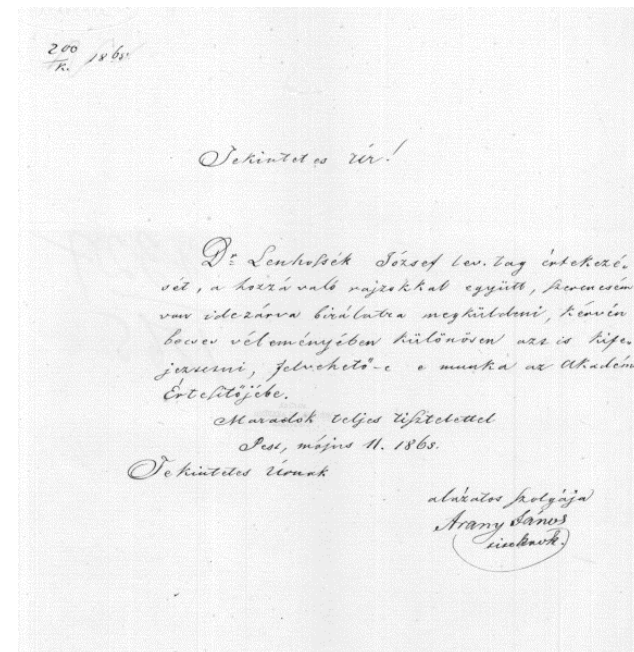 200/R. 1868
Tekintetes Úr!
Dr Lenhossék József lev. tag értekezé-
sét, a hozzá való rajzokkal együtt, szerencsém
van idezárva birálatra megküldeni, kérvén
becses véleményében különösen azt is kife-
jezetni, felvehető-e e munka az Akadém
Értesítőjébe.
Maradok teljes tisztelettel
Pest, május 11. 1868.
Tekintetes Úrnak
alázatos szolgája
Arany János